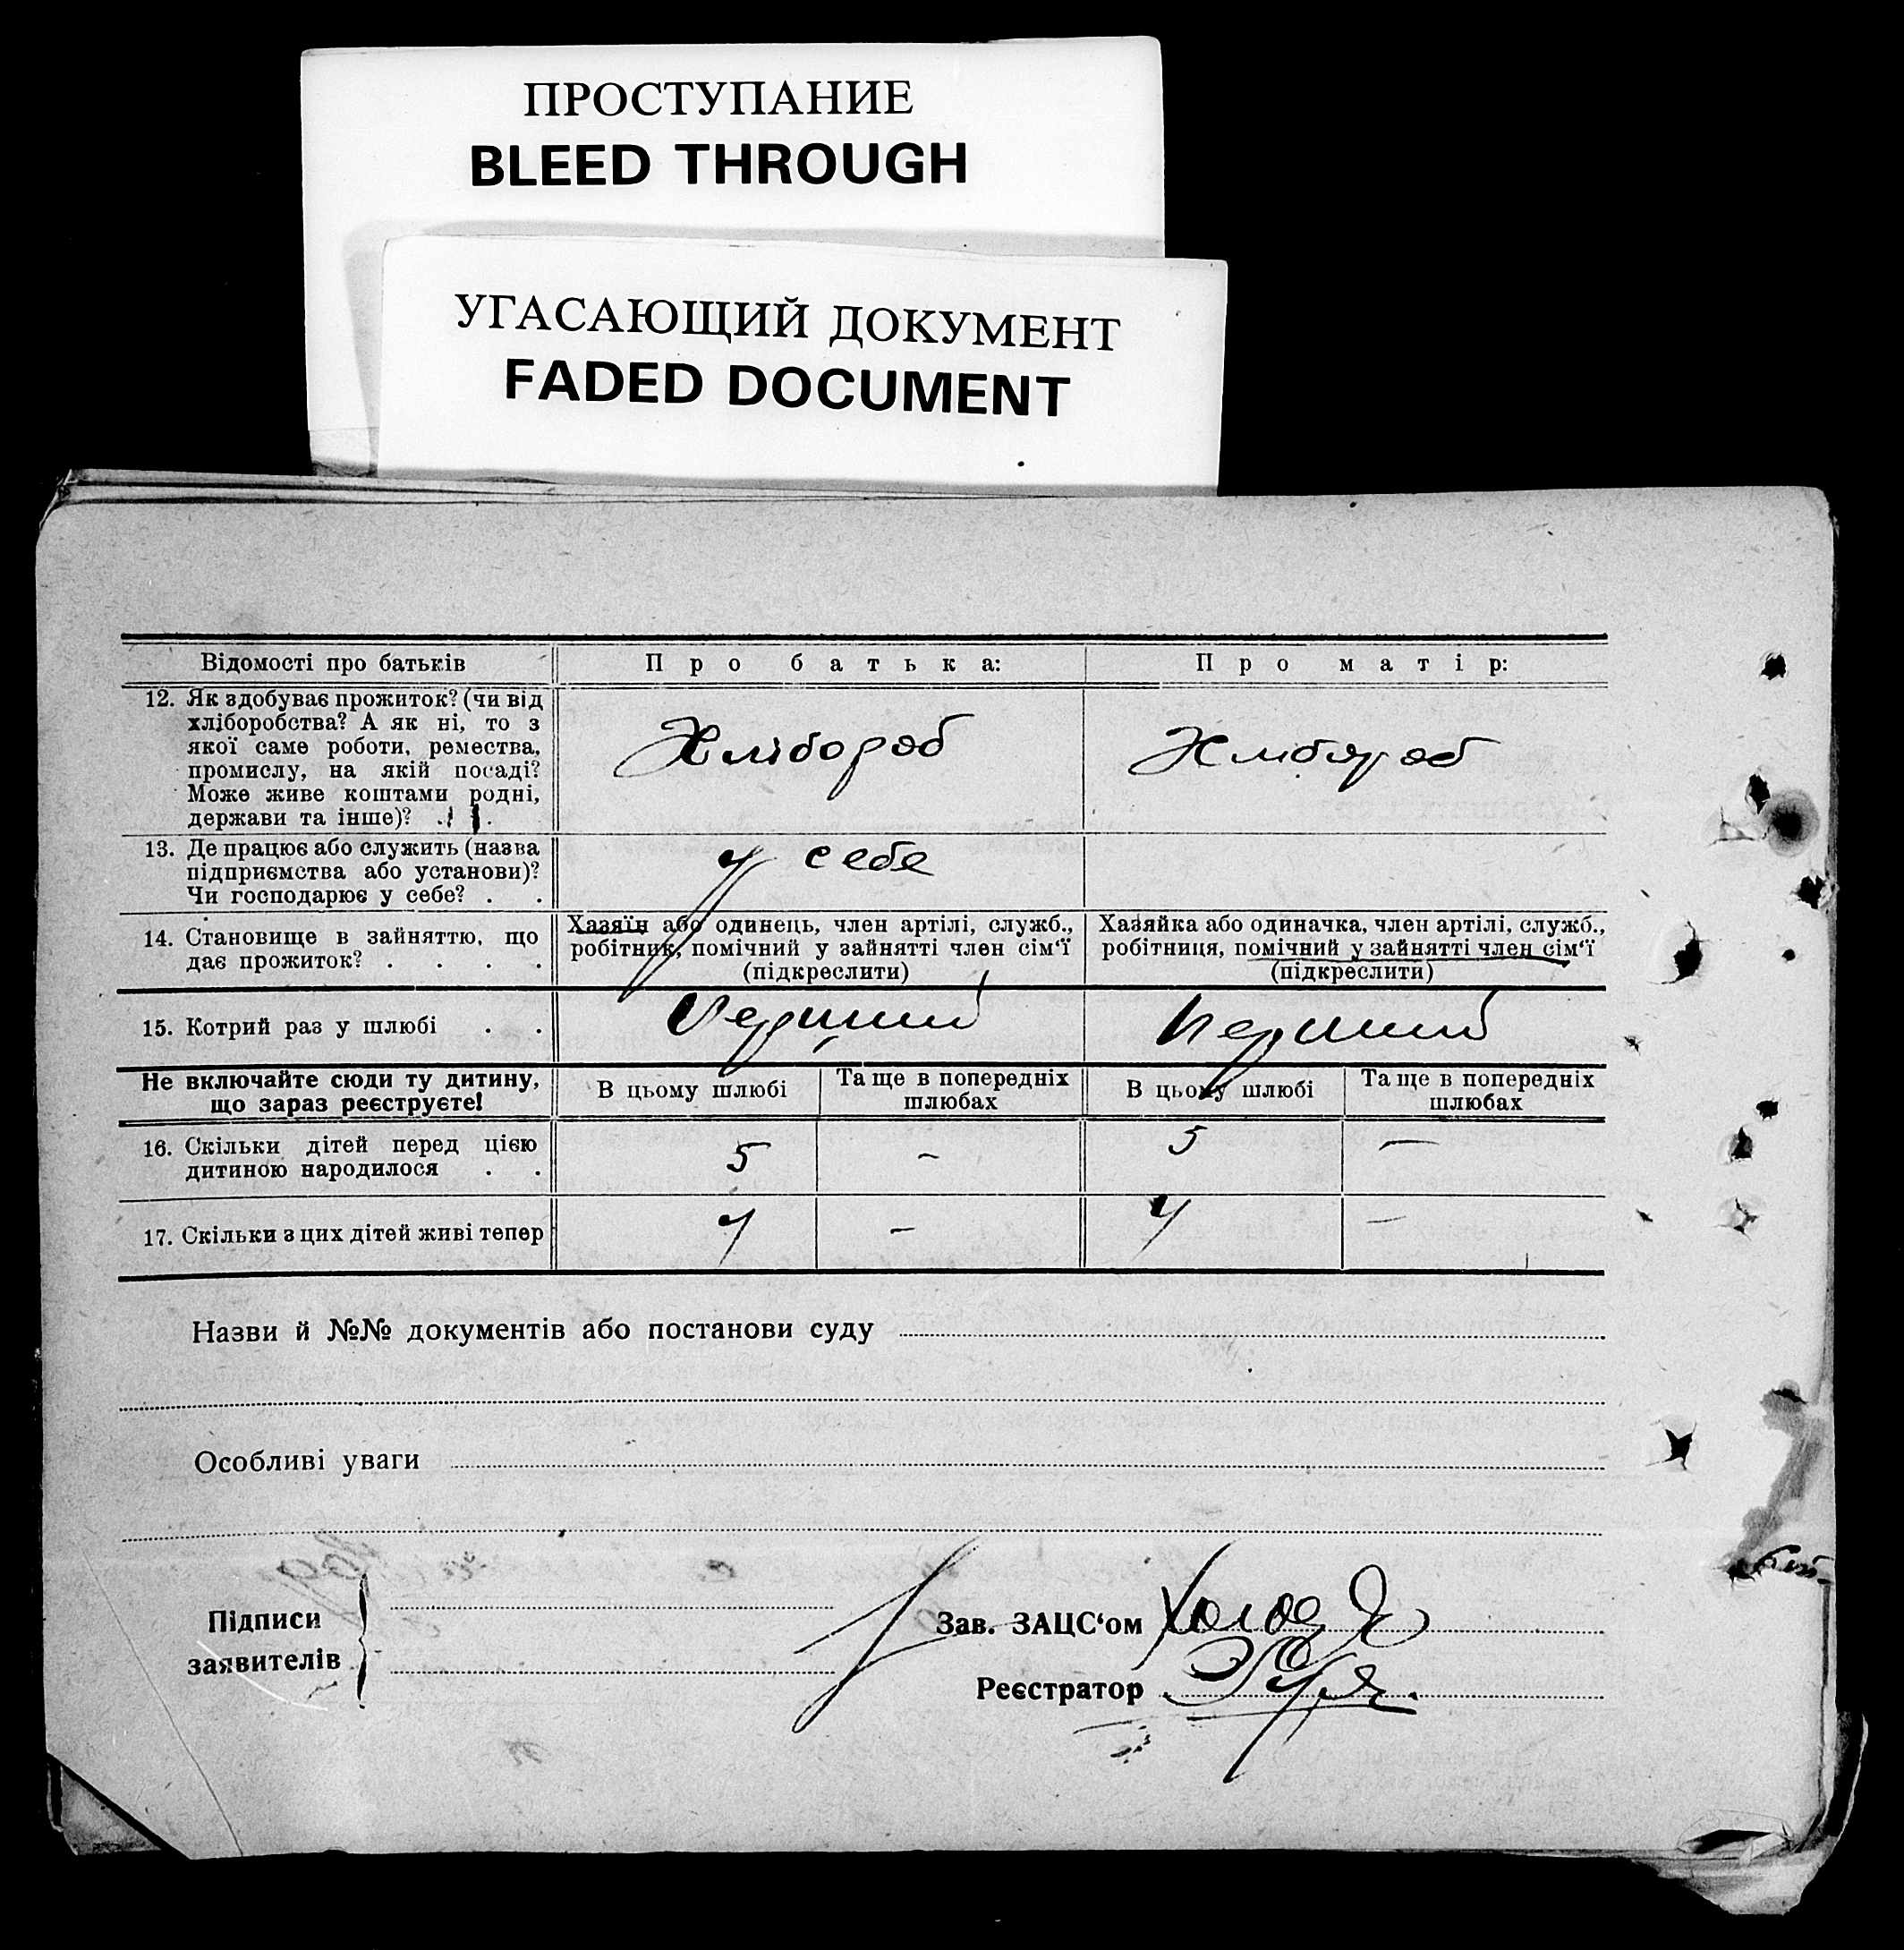 ПРОСТУПАНИЕ
BLEED THROUGH
УГАСАЮЩИЙ ДОКУМЕНТ
FADED DOCUMENT
Відомості про батьків
Про батька:
Про матір:
12. Як здобуває прожиток? (чи від
хліборобства? А як ні, то з
якої саме роботи, ремества,
промислу, на якій посаді?
Може живе коштами родні,
держави та інше)? . .
Хлібороб
Хлібороб
13. Де працює або служить (назва
підприємства або установи)?
Чи господарює у себе? . .
у себе
14. Становище в зайняттю, що
дає прожиток? . . . .
Хазяїн або одинець, член артілі, служб.,
робітник, помічний у зайнятті член сім'ї
(підкреслити)
Хазяйка або одиначка, член артілі, служб.,
робітниця, помічний у зайнятті член сім'ї
(підкреслити)
15. Котрий раз у шлюбі . .
Перший
Перший
Не включайте сюди ту дитину,
що зараз реєструєте!
В цьому шлюбі
Та ще в попередніх
шлюбах
В цьому шлюбі
Та ще в попередніх
шлюбах
16. Скільки дітей перед цією
дитиною народилося . .
5 – 5 –
17. Скільки з цих дітей живі тепер
4 – 4 –
Назви й №№ документів або постанови суду
Особливі уваги
Підписи
заявителів
Зав. ЗАЦС'ом
Реєстратор